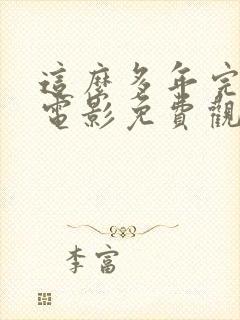 這麼多年完
電影免費觀
李富